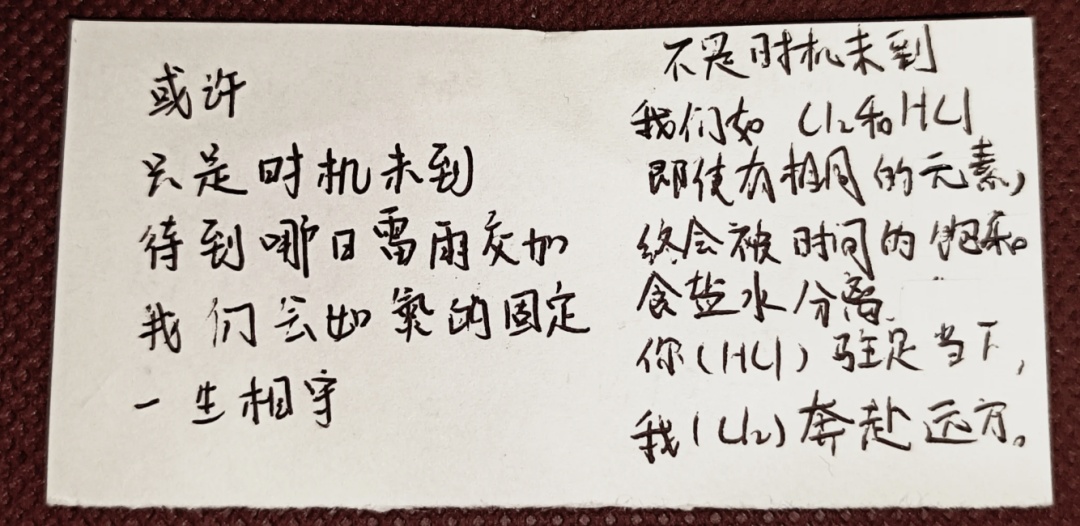 或许
只是时机未到
待到哪日雷雨交加
我们会如氮的固定
一生相守
不是时机未到
我们如 Cl₂和HCl
即使有相同的元素,
终会被时间的饱和
食盐水分离.
你(HCl)驻足当下,
我(Cl₂)奔赴远方。